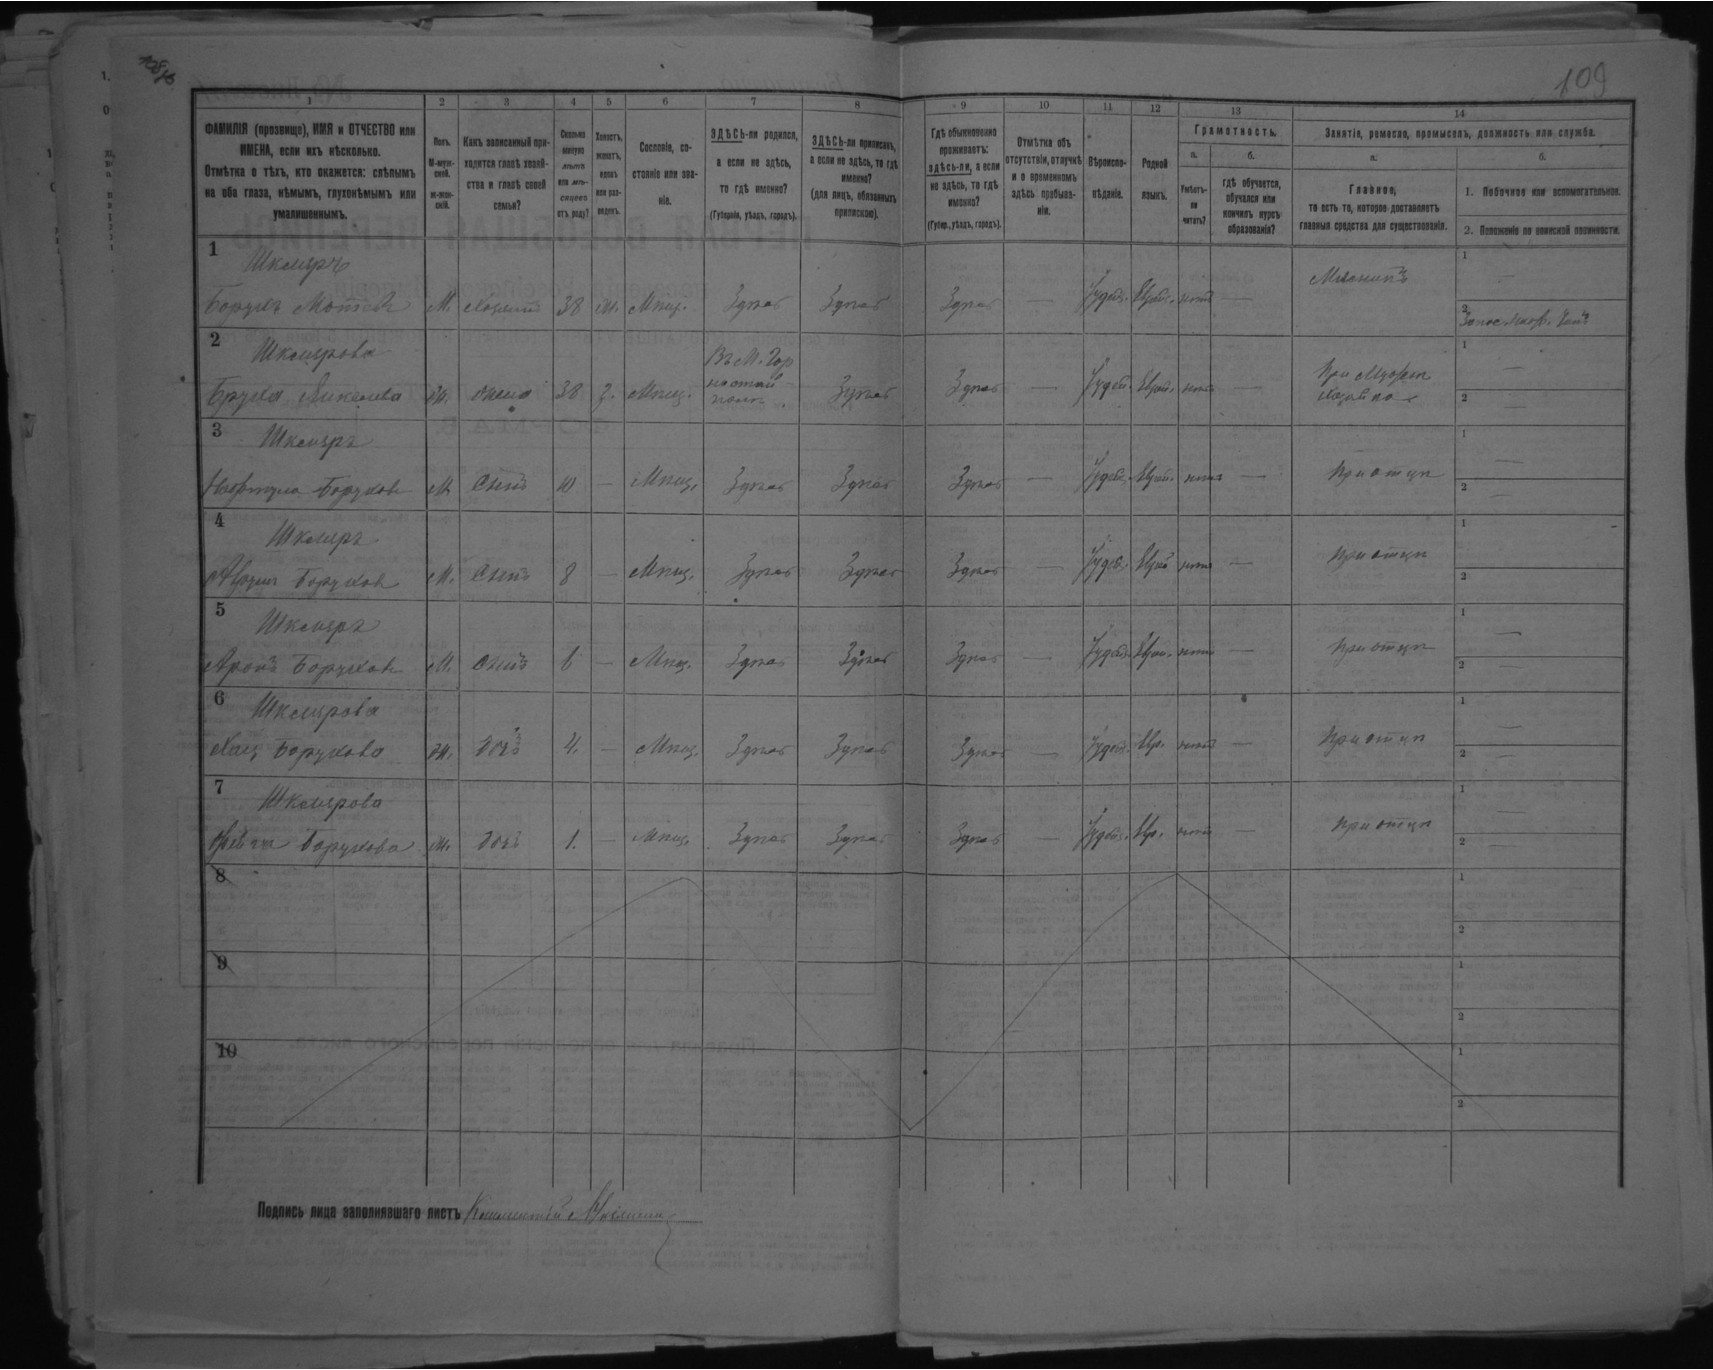 109
1 2 3 4 5 6 7 8 9 10 11 12 13 14
ФАМИЛІЯ (прозвище), ИМЯ и ОТЧЕСТВО или
ИМЕНА, если ихъ нѣсколько.
Отмѣтка о тѣхъ, кто окажется: слѣпымъ
на оба глаза, нѣмымъ, глухонѣмымъ или
умалишеннымъ.
Полъ.
М-муж-
ской.
ж-жен-
скій.
Какъ записанный при-
ходится главѣ хозяй-
ства и главѣ своей
семьи?
Сколько
минуло
лѣтъ
или мѣ-
сяцевъ
отъ роду?
Холостъ,
женатъ,
вдовъ
или раз-
веденъ.
Сословіе, со-
стояніе или зва-
ніе.
ЗДѢСЬ-ли родился,
а если не здѣсь,
то гдѣ именно?
(Губернія, уѣздъ, городъ).
ЗДѢСЬ-ли приписанъ,
а если не здѣсь, то гдѣ
именно?
(для лицъ, обязанныхъ
припискою).
Гдѣ обыкновенно
проживаетъ:
здѣсь-ли, а если
не здѣсь, то гдѣ
именно?
(Губер., уѣздъ, городъ).
Отмѣтка объ
отсутствіи, отлучкѣ
и о временномъ
здѣсь пребыва-
ніи.
Вѣроиспо-
вѣданіе.
Родной
языкъ.
Грамотность.
а.
Умѣетъ-
ли
читать?
б.
гдѣ обучается,
обучался или
кончилъ курсъ
образованія?
Занятіе, ремесло, промыселъ, должность или служба.
а.
Главное,
то есть то, которое доставляетъ
главныя средства для существованія.
б.
1. Побочное или вспомогательное.
2. Положеніе по воинской повинности.
1
Шкляръ
Борухъ М. 38 ж. Мѣщ. Здѣсь Здѣсь Здѣсь — Іудей. Еврей. нѣтъ —
1 —
2
2
Шклярова
ж. жена 38 з. Мѣщ. Здѣсь Здѣсь — Іудей. Еврей. нѣтъ —
При мужѣ
1 —
2 —
3
Шкляръ
Борухов М. Сынъ 10 — Мѣщ. Здѣсь Здѣсь Здѣсь — Іудей. Еврей. нѣтъ — При отцѣ
1 —
2 —
4
Шкляръ
Борухов М. Сынъ 8 — Мѣщ. Здѣсь Здѣсь Здѣсь — Іудей. Еврей нѣтъ — При отцѣ
1
2
5
Шкляръ
Аронъ Борухов М. Сынъ 6 — Мѣщ. Здѣсь Здѣсь Здѣсь — Іудей. Еврей. нѣтъ — При отцѣ
1 —
2 —
6
Шклярова
Борухова ж. дочь 4. — Мѣщ. Здѣсь Здѣсь Здѣсь — Іудей. Евр. нѣтъ — При отцѣ
1 —
2 —
7
Шклярова
Борухова ж. дочь 1. — Мѣщ. Здѣсь Здѣсь Здѣсь — Іудей. Евр. нѣтъ — При отцѣ
1 —
2 —
8
1
2
9
1
2
10
1
2
Подпись лица заполнявшаго листъ